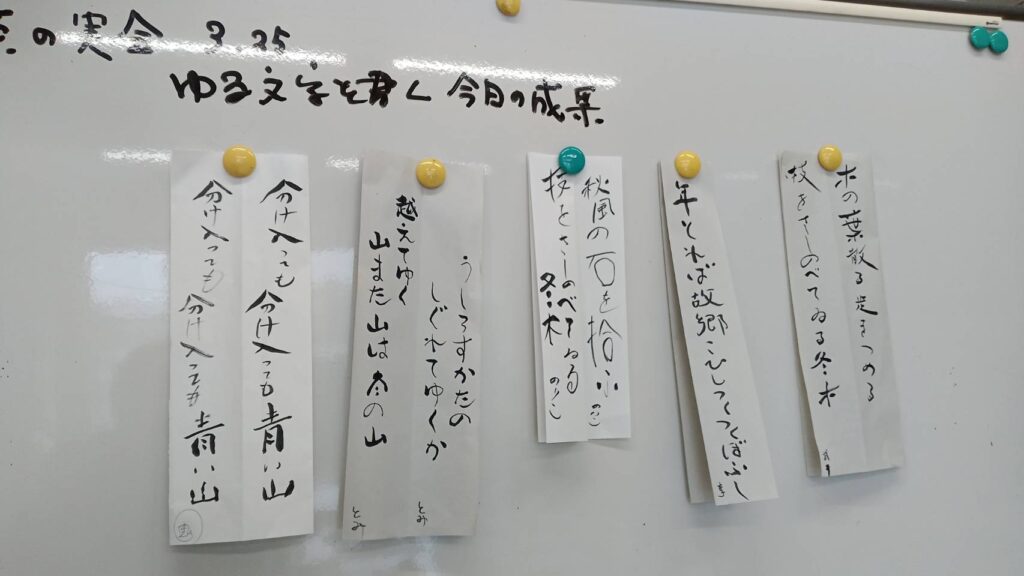 の実会 3.25
ゆる文字を書く 今日の成果
木の葉散る歩きつめる
枝をさしのべてゐる冬木
年とれば故郷こひしつくつくぼふし
秋風の石を拾ふ
枝をさしのべてゐる
冬木
うしろすがたの
しぐれてゆくか
とみ
越えてゆく
山また山は冬の山
とみ
分け入っても 分け入っても青い山
分け入っても 分け入っても青い山
恵